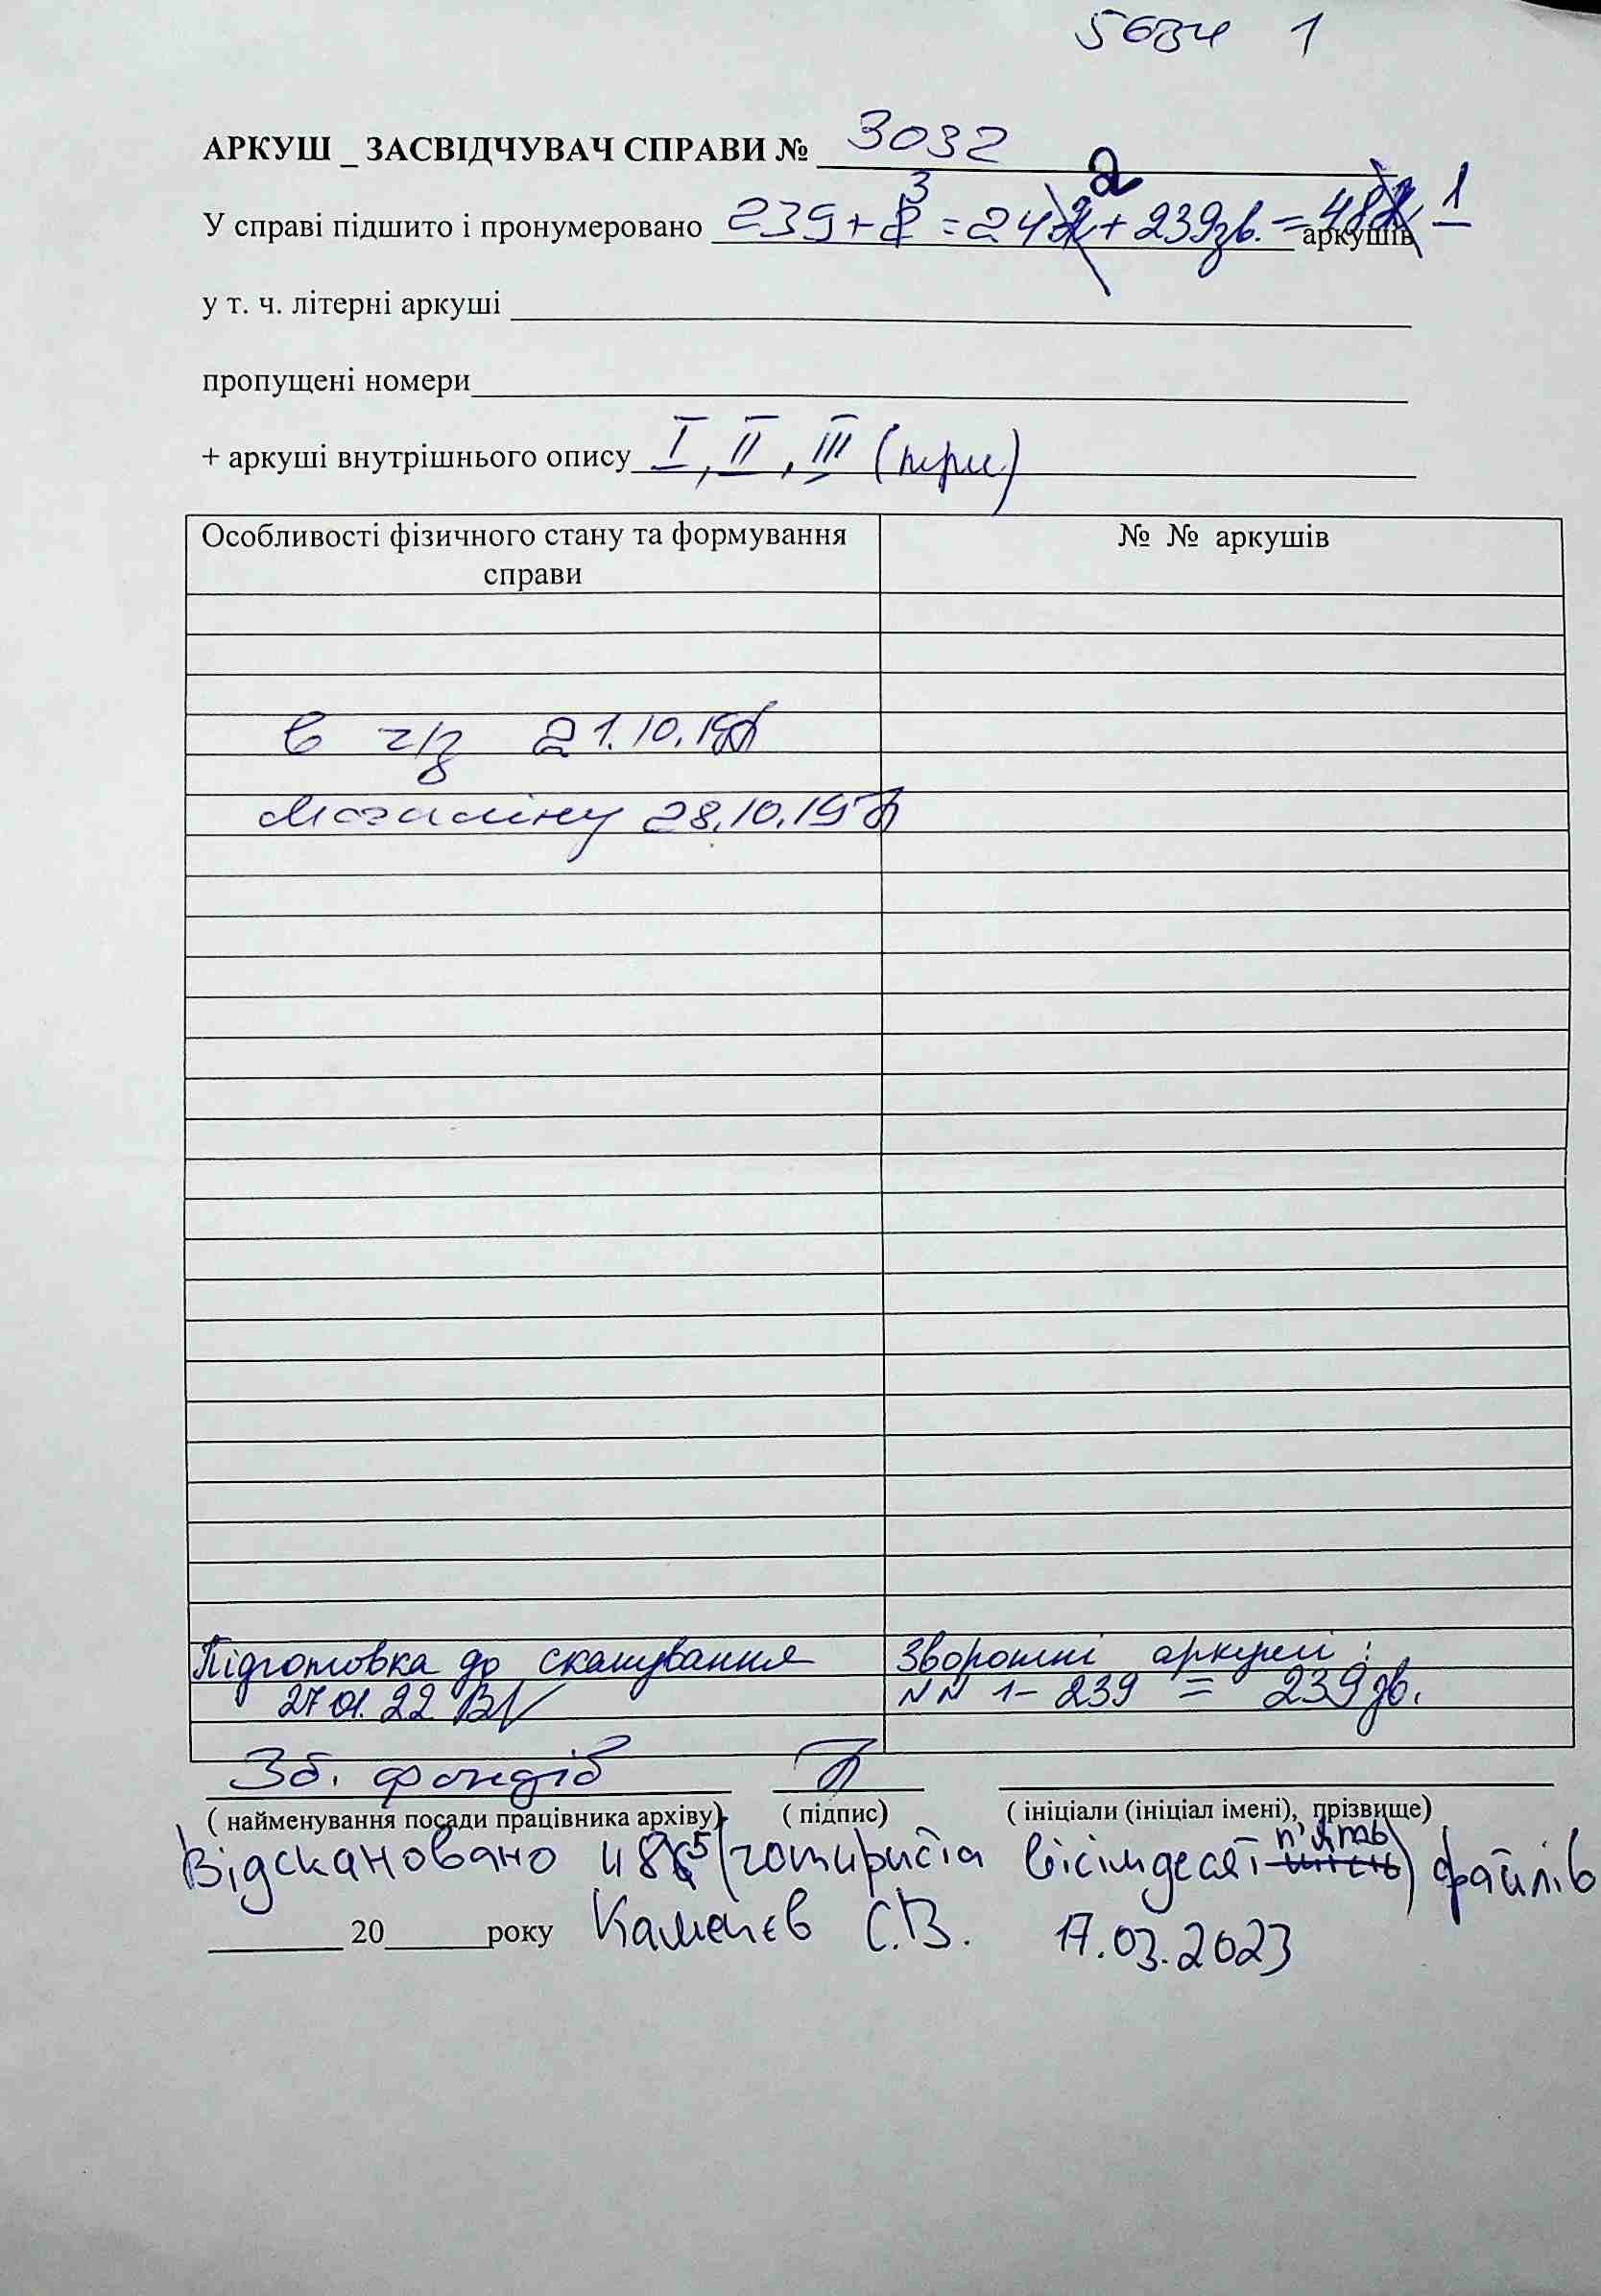 5634 1
АРКУШ _ ЗАСВІДЧУВАЧ СПРАВИ № 3032
У справі підшито і пронумеровано 239+3 = 242 + 239зв. = 481 аркушів
у т. ч. літерні аркуші
пропущені номери
+ аркуші внутрішнього опису I, II, III (три)
Особливості фізичного стану та формування справи
№ № аркушів
в ч/з 21.10.
28.10.
Підготовка до сканування
Зворотні аркуші:
27 01. 22
NN 1– 239 = 239 зв.
Зб. фондів
( найменування посади працівника архіву) ( підпис) ( ініціали (ініціал імені), прізвище)
Відскановано 485 (чотириста вісімдесят п'ять) файлів
20 року Каменєв С.В. 17.03.2023